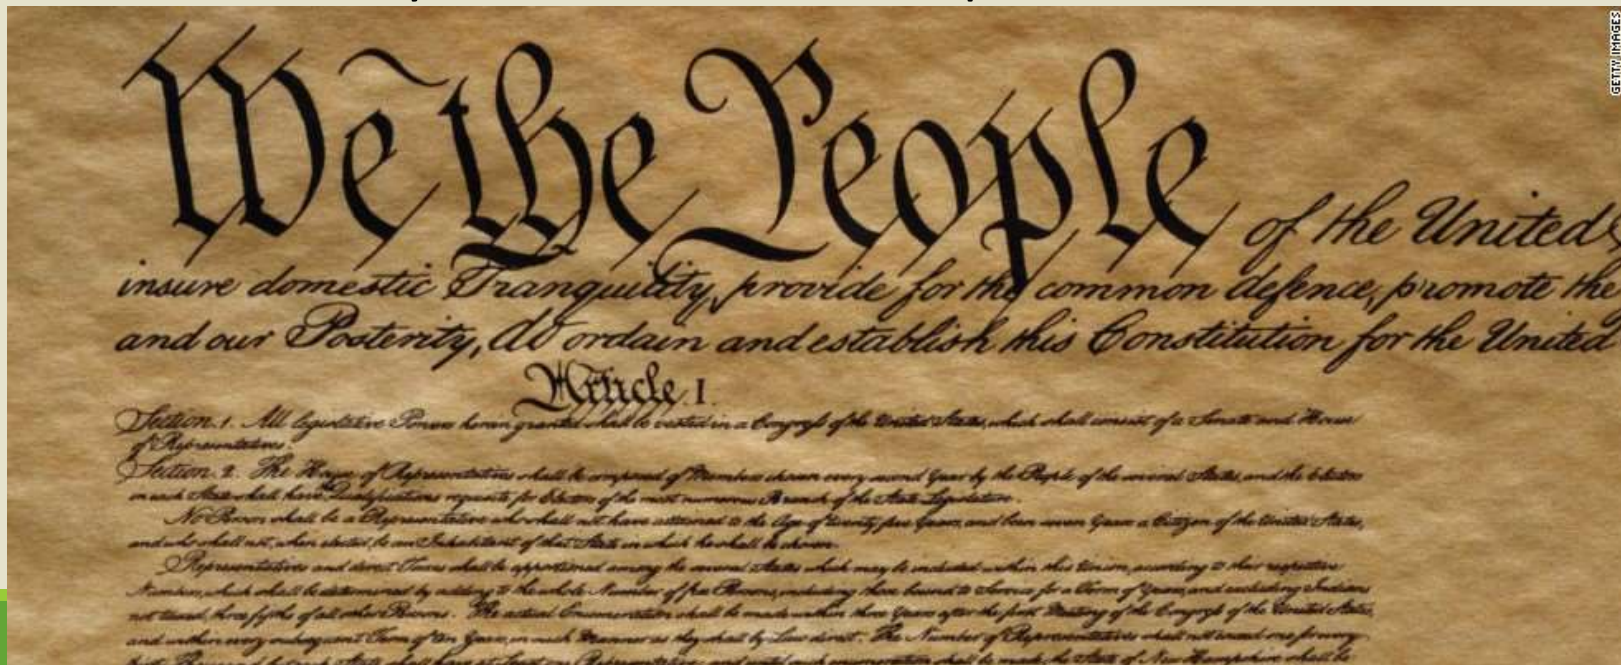 We the People of the United
insure domestic Tranquility, provide for the common defence, promote the
and our Posterity, do ordain and establish this Constitution for the United
Article. I.
Section. 1. All legislative Powers herein granted shall be vested in a Congress of the United States, which shall consist of a Senate and House
of Representatives.
Section. 2. The House of Representatives shall be composed of Members chosen every second Year by the People of the several States, and the Electors
in each State shall have Qualifications requisite for Electors of the most numerous Branch of the State Legislature.
No Person shall be a Representative who shall not have attained to the Age of twenty five Years, and been seven Years a Citizen of the United States,
and who shall not, when elected, be an Inhabitant of that State in which he shall be chosen.
Representatives and direct Taxes shall be apportioned among the several States which may be included within this Union, according to their respective
Numbers, which shall be determined by adding to the whole Number of free Persons, including those bound to Service for a Term of Years, and excluding Indians
not taxed, three fifths of all other Persons. The actual Enumeration shall be made within three Years after the first Meeting of the Congress of the United States,
and within every subsequent Term of ten Years, in such Manner as they shall by Law direct. The Number of Representatives shall not exceed one for every
each State shall have at Least one Representative; and until such enumeration shall be made, the State of New Hampshire shall be
GETTY IMAGES